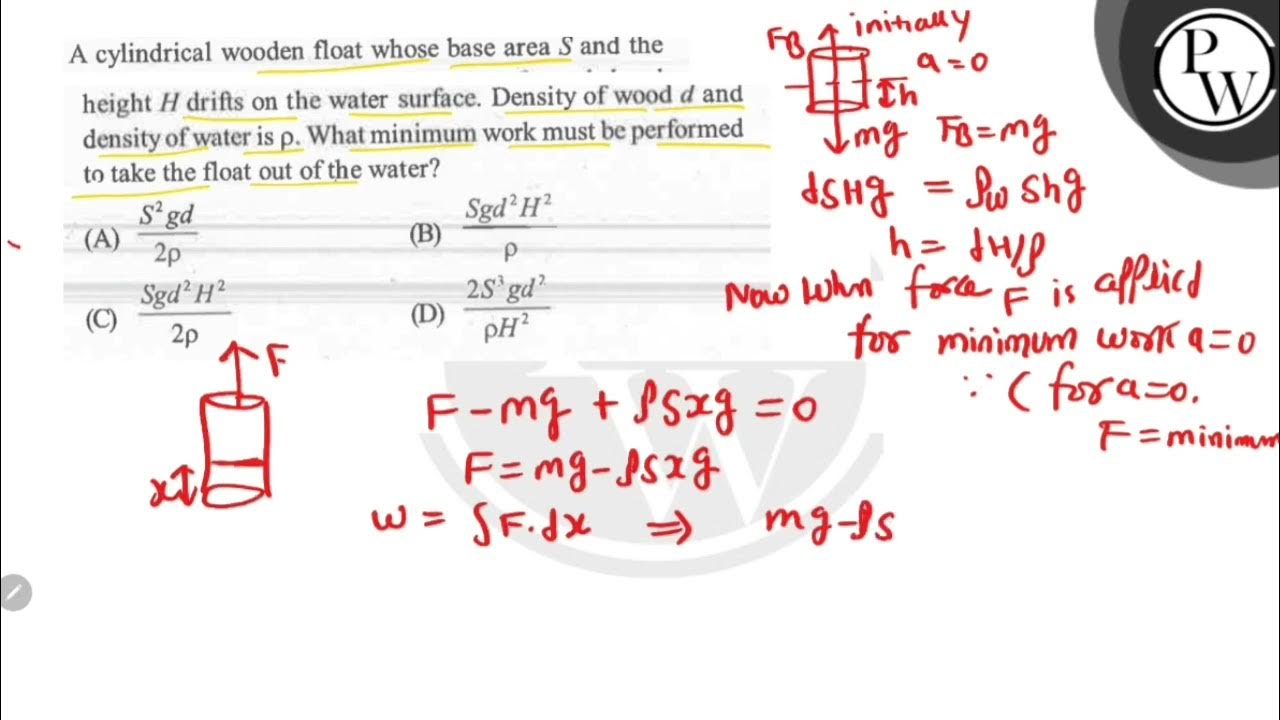 A cylindrical wooden float whose base area S and the
height H drifts on the water surface. Density of wood d and
density of water is ρ. What minimum work must be performed
to take the float out of the water?
(A) S²gd / 2ρ
(B) Sgd²H² / ρ
(C) Sgd²H² / 2ρ
(D) 2S³gd² / ρH²
P
W
FB initially
a=0
h
mg FB=mg
dSHg = ρw Shg
h = dH/ρ
Now when force F is applied
for minimum work a=0
∵ (for a=0.
F = minimum
F
x
F - mg + ρSxg = 0
F = mg - ρSxg
W = ∫F.dx ⇒ mg-ρS